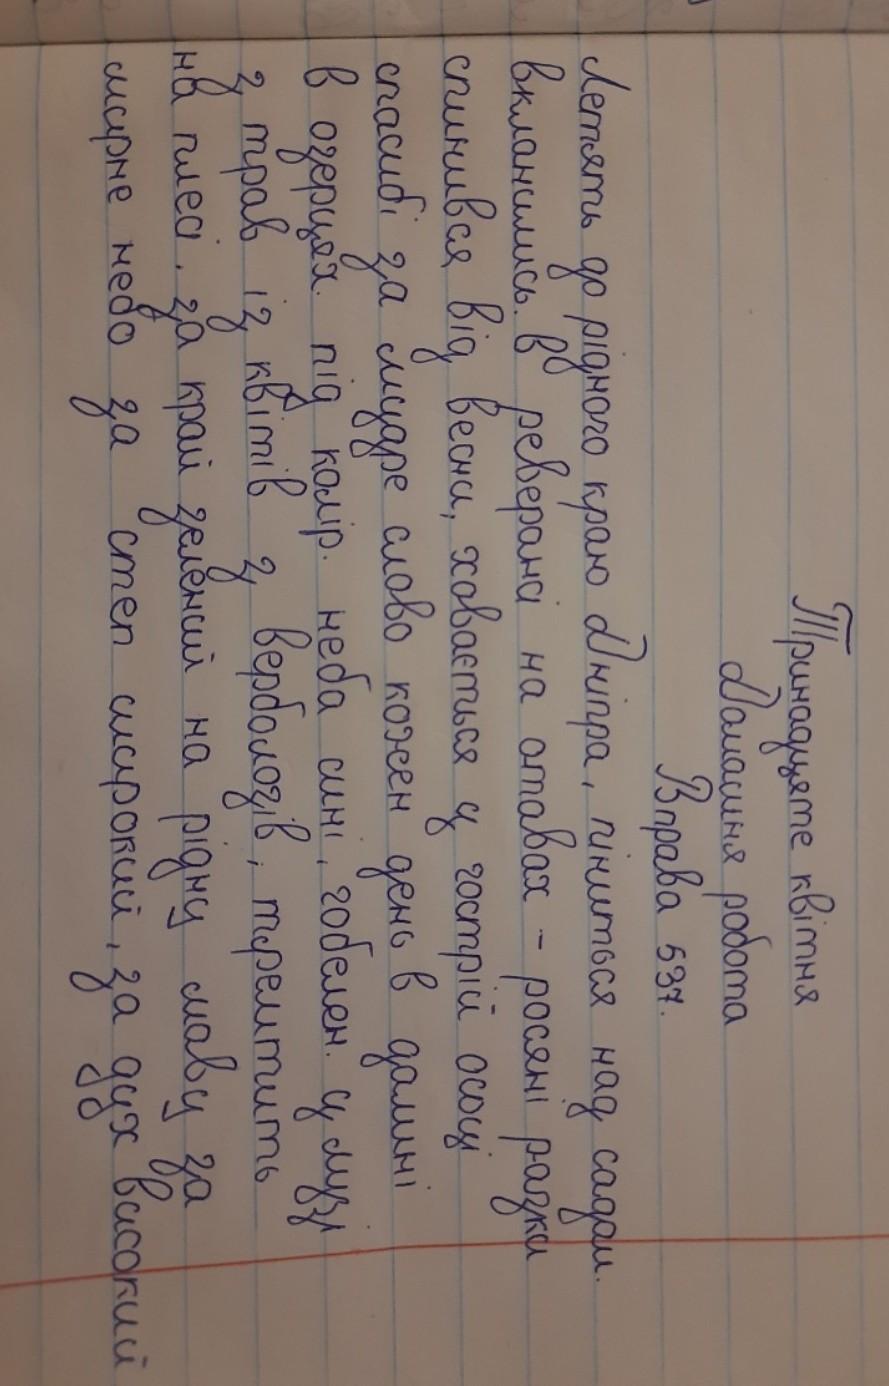 Тринадцяте квітня
Домашня робота
Вправа 537.
Летять до рідного краю Дніпра, піниться над садом.
вклонились в реверансі на отавах - росяні разки
спинився від весни, ховається у гострій осоці
спасибі за мудре слово кожен день в долині
в озерцях. під колір. неба сині, гобелен. у лузі
з трав із квітів з верболозів, тремтить
на плесі, за край зелений на рідну мову за
мирне небо за степ широкий, за дух високий